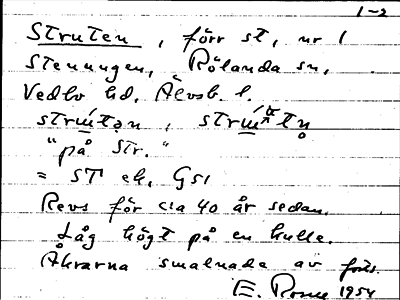 1-2
Struten, förr st, nr 1
Stenungen, Rölanda sn,
Vedbo hd, Älvsb. l.
"på Str."
= ST ek, Gs1
Revs för c:a 40 år sedan.
Låg högt på en kulle.
Åkrarna smalnade av
E. Rome 1954